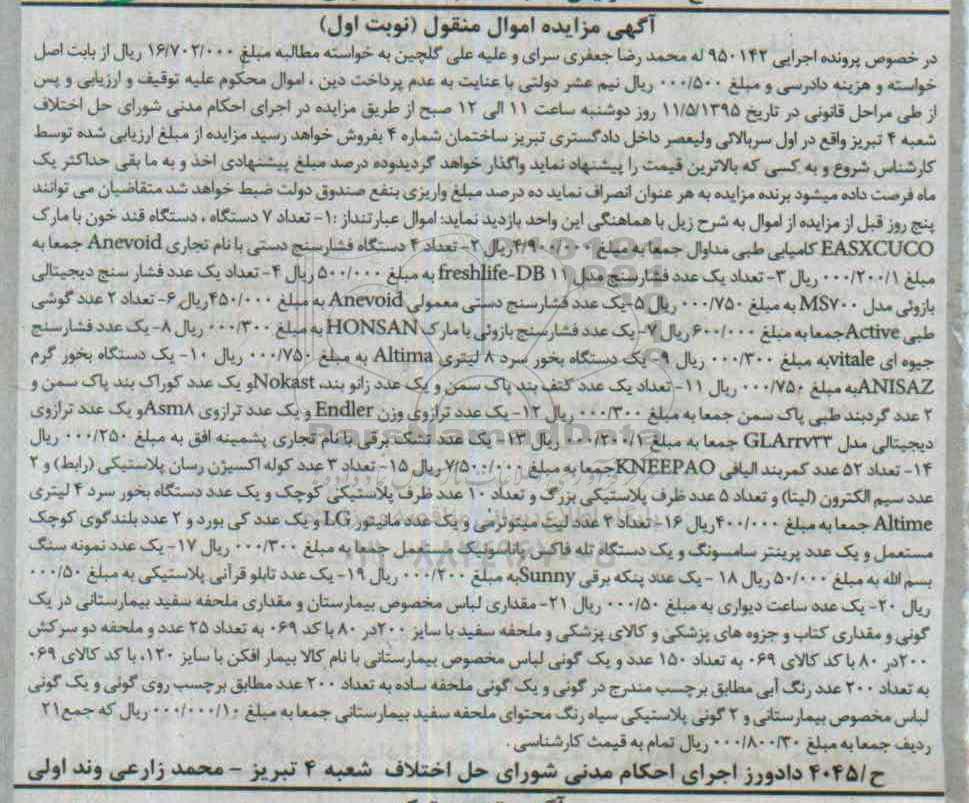 آگهی مزایده اموال منقول (نوبت اول)
در خصوص پرونده اجرایی ۹۵۰۱۴۲ له محمد رضا جعفری سرای و علیه علی گلچین به خواسته مطالبه مبلغ ۱۶/۷۰۲/۰۰۰ ریال از بابت اصل
خواسته و هزینه دادرسی و مبلغ ۰۰۰/۵۰۰ ریال نیم عشر دولتی با عنایت به عدم پرداخت دین ، اموال محکوم علیه توقیف و ارزیابی و پس
از طی مراحل قانونی در تاریخ ۱۱/۵/۱۳۹۵ روز دوشنبه ساعت ۱۱ الی ۱۲ صبح از طریق مزایده در اجرای احکام مدنی شورای حل اختلاف
شعبه ۴ تبریز واقع در اول سربالائی ولیعصر داخل دادگستری تبریز ساختمان شماره ۴ بفروش خواهد رسید مزایده از مبلغ ارزیابی شده توسط
کارشناس شروع و به کسی که بالاترین قیمت را پیشنهاد نماید واگذار خواهد گردیدوده درصد مبلغ پیشنهادی اخذ و به ما بقی حداکثر یک
ماه فرصت داده میشود برنده مزایده به هر عنوان انصراف نماید ده درصد مبلغ واریزی بنفع صندوق دولت ضبط خواهد شد متقاضیان می توانند
پنج روز قبل از مزایده از اموال به شرح زیل با هماهنگی این واحد بازدید نماید: اموال عبارتنداز :۱- تعداد ۷ دستگاه ، دستگاه قند خون با مارک
EASXCUCO کامیابی طبی متداوال جمعا به مبلغ ۴/۹۰۰/۰۰۰ریال ۲- تعداد ۴ دستگاه فشارسنج دستی با نام تجاری Anevoid جمعا به
مبلغ ۰۰۰/۲۰۰/۱ ریال ۳- تعداد یک عدد فشارسنج مدل freshlife-DB ۱۱ به مبلغ ۵۰۰/۰۰۰ ریال ۴- تعداد یک عدد فشار سنج دیجیتالی
بازوئی مدل MS۷۰۰ به مبلغ ۰۰۰/۷۵۰ ریال ۵-یک عدد فشارسنج دستی معمولی Anevoid به مبلغ ۴۵۰/۰۰۰ریال ۶- تعداد ۲ عدد گوشی
طبی Activeجمعا به مبلغ ۶۰۰/۰۰۰ ریال ۷- یک عدد فشارسنج بازوئی با مارک HONSAN به مبلغ ۰۰۰/۳۰۰ ریال ۸- یک عدد فشارسنج
جیوه ای vitaleبه مبلغ ۰۰۰/۳۰۰ ریال ۹- یک دستگاه بخور سرد ۸ لیتری Altima به مبلغ ۰۰۰/۷۵۰ ریال ۱۰- یک دستگاه بخور گرم
ANISAZبه مبلغ ۰۰۰/۷۵۰ ریال ۱۱- تعداد یک عدد کتف بند پاک سمن و یک عدد زانو بند، Nokastو یک عدد کوراک بند پاک سمن و
۲ عدد گردبند طبی پاک سمن جمعا به مبلغ ۰۰۰/۳۰۰ ریال ۱۲- یک عدد ترازوی وزن Endler و یک عدد ترازوی Asm۸و یک عدد ترازوی
دیجیتالی مدل GLArrv۳۳ جمعا به مبلغ ۰۰۰/۲۰۰/۱ ریال ۱۳- یک عدد تشک برقی با نام تجاری پشمینه افق به مبلغ ۰۰۰/۲۵۰ ریال
۱۴- تعداد ۵۲ عدد کمربند الیافی KNEEPAOجمعا به مبلغ ۷/۵۰۰/۰۰۰ریال ۱۵- تعداد ۳ عدد کوله اکسیژن رسان پلاستیکی (رابط) و ۲
عدد سیم الکترون (لیتا) و تعداد ۵ عدد ظرف پلاستیکی بزرگ و تعداد ۱۰ عدد ظرف پلاستیکی کوچک و یک عدد دستگاه بخور سرد ۴ لیتری
Altime جمعا به مبلغ ۴۰۰/۰۰۰ریال ۱۶- تعداد ۲ عدد لیت میتوئرمی و یک عدد مانیتور LG و یک عدد کی بورد و ۲ عدد بلندگوی کوچک
مستعمل و یک عدد پرینتر سامسونگ و یک دستگاه تله فاکس پاناسونیک مستعمل جمعا به مبلغ ۰۰۰/۳۰۰ ریال ۱۷- یک عدد نمونه سنگ
بسم الله به مبلغ ۵۰/۰۰۰ ریال ۱۸ - یک عدد پنکه برقی Sunnyبه مبلغ ۰۰۰/۲۰۰ ریال ۱۹- یک عدد تابلو قرآنی پلاستیکی به مبلغ ۰۰۰/۵۰
ریال ۲۰- یک عدد ساعت دیواری به مبلغ ۰۰۰/۵۰ ریال ۲۱- مقداری لباس مخصوص بیمارستان و مقداری ملحفه سفید بیمارستانی در یک
گونی و مقداری کتاب و جزوه های پزشکی و کالای پزشکی و ملحفه سفید با سایز ۲۰۰در ۸۰ با کد ۰۶۹ به تعداد ۲۵ عدد و ملحفه دو سرکش
۲۰۰در ۸۰ با کد کالای ۰۶۹ به تعداد ۱۵۰ عدد و یک گونی لباس مخصوص بیمارستانی با نام کالا بیمار افکن با سایز ۱۲۰، با کد کالای ۰۶۹
به تعداد ۲۰۰ عدد رنگ آبی مطابق برچسب مندرج در گونی و یک گونی ملحفه ساده به تعداد ۲۰۰ عدد مطابق برچسب روی گونی و یک گونی
لباس مخصوص بیمارستانی و ۲ گونی پلاستیکی سیاه رنگ محتوای ملحفه سفید بیمارستانی جمعا به مبلغ ۰۰۰/۰۰۰/۱۰ ریال که جمع۲۱
ردیف جمعا به مبلغ ۰۰۰/۸۰۰/۳۰ ریال تمام به قیمت کارشناسی .
ح/۴۰۴۵ دادورز اجرای احکام مدنی شورای حل اختلاف شعبه ۴ تبریز - محمد زارعی وند اولی